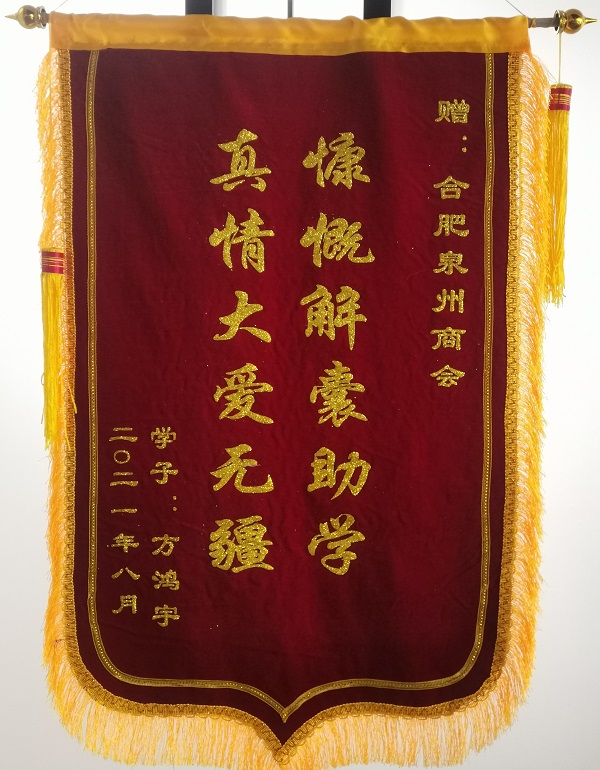 赠：合肥泉州商会
慷慨解囊助学
真情大爱无疆
学子：方鸿宇
二〇二一年八月